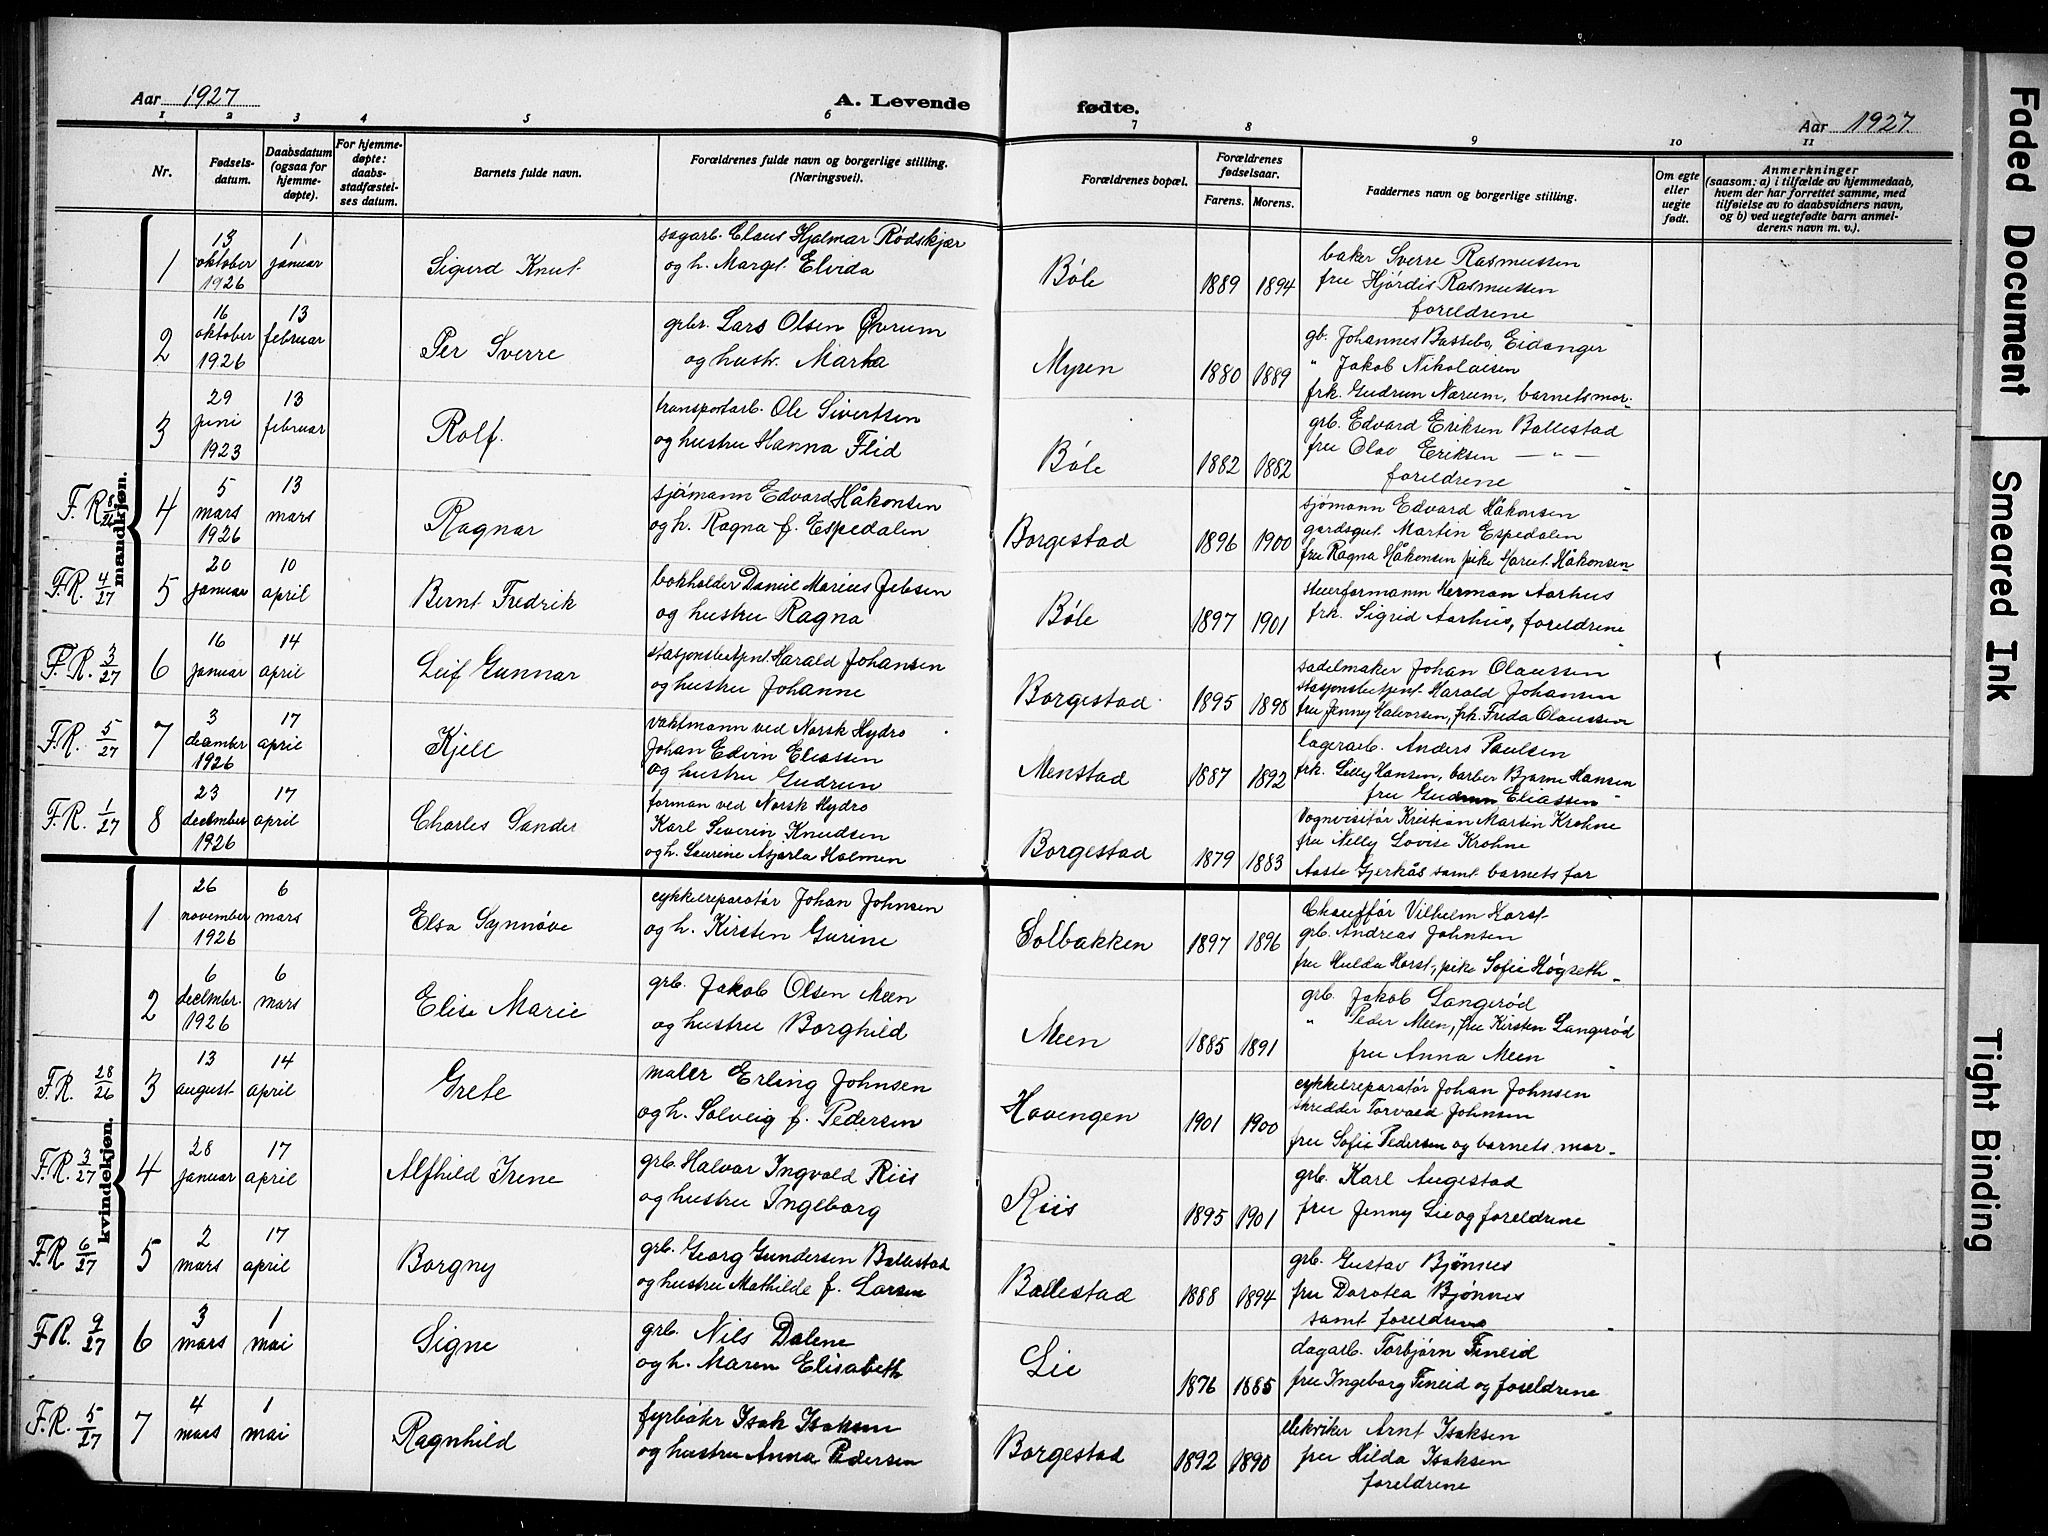 Aar 1927
A. Levende
1 2 3 4 5 6
Nr.
Fødsels-
datum.
Daabsdatum
(ogsaa for
hjemme-
døpte).
For hjemme-
døpte:
daabs-
stadfæstel-
ses datum.
Barnets fulde navn.
Forældrenes fulde navn og borgerlige stilling.
(Næringsvei).
maandkjøn.
1
13
oktober
1926
1
januar
Sigurd Knut.
sagarb. Claus Hjalmar Rødskjær
og h. Marget. Elvida
2
16
oktober
1926
13
februar
Per Sverre
grbr. Lars Olsen
og hustr. Marka
3
29
juni
1923
13
februar
Rolf.
transportarb. Ole Sivertsen
og hustru Hanna Flid
F.R.
4
5
mars
1926
13
mars
Ragnar
sjømann Edvard Håkonsen
og h. Ragna f. Espedalen
F.R. 4/27
5
20
januar
10
april
Bernt Fredrik
bokholder Daniel Marius Jebsen
og hustru Ragna
F.R. 3/27
6
16
januar
14
april
Leif Gunnar
stasjonsbetjent. Harald Johansen
og hustru Johanne
F.R. 5/27
7
3
december
1926
17
april
Kjell
vaktmann ved Norsk Hydro
Johan Edvin Eliassen
og hustru Gudrun
F.R. 1/27
8
23
december
1926
17
april
Charles Sander
forman ved Norsk Hydro
Karl Severin Knudsen
og h. Laurine Asjarla Holmen
kvindekjøn.
1
26
november
1926
6
mars
Elsa Synnøve
cykkelreparatør Johan Johnsen
og h. Kirsten Gurine
2
6
decembr.
1926
6
mars
Elise Marie
grb. Jakob Olsen Meen
og hustru Borghild
F.R. 28/26
3
13
august
14
april
Grete
maler Erling Johnsen
og h. Solveig f. Pedersen
F.R. 3/27
4
28
januar
17
april
Alfhild Irene
grb. Halvar Ingvald Riis
og hustru Ingeborg
F.R. 6/27
5
2
mars
17
april
Borgny
grb. Georg Gundersen Ballestad
og hustru Mathilde f. Larsen
F.R. 9/27
6
3
mars
1
mai
Signe
grb. Nils Dalene
og h. Maren Elisabeth
F.R. 5/27
7
4
mars
1
mai
Ragnhild
fyrbøtr Isak Isaksen
og hustru Anna Pedersen
fødte.
Aar 1927.
7 8 9 10 11
Forældrenes bopæl.
Forældrenes
fødselsaar.
Farens. Morens.
Faddernes navn og borgerlige stilling.
Om egte
eller
uegte
født.
Anmerkninger
(saasom: a) i tilfælde av hjemmedaab,
hvem der har forrettet samme, med
tilføielse av to daabsvidners navn,
og b) ved uegtefødte barn anmel-
derens navn m. v.).
Bøle 1889 1894
baker Sverre Rasmussen
fru Hjørdis Rasmussen
foreldrene
Myren 1880 1889
gb. Johannes Bassebo, Eidanger
" Jakob Nikolaisen
frk. Gudrun Nærum, barnets mor.
Bøle 1882 1882
grb. Edvard Eriksen Ballestad
fru Olav Eriksen — " —
foreldrene
Borgestad 1896 1900
sjømann Edvard Håkonsen
gardsgut. Martin Espedalen
fru Ragna Håkonsen pike Marit. Håkonsen
Bøle 1897 1901
steuerformann Herman Aarhus
frk. Sigrid Aarhus, foreldrene
Borgestad 1895 1898
sadelmaker Johan Olaussen
stasjonsbetjent. Harald Johansen
fru Jenny Halvorsen, frk. Freda Olaussen
Menstad 1887 1892
lagerarb. Anders Paulsen
frk. Lilly Hansen, barber Bjarne Hansen
fru Gudrun Eliassen
Borgestad 1879 1883
Vognvisitør Kristian Martin Krohne
fru Nelly Lovise Krohne
Aaste Gjerkås samt barnets far
Solbakken 1897 1896
Chauffør Vilhelm Horst
grb. Andreas Johnsen
fru Hulda Horst, pike Sofie Høgseth
Meen 1885 1891
grb. Jakob Langerød
" Peder Meen, fru Kirsten Langerød
fru Anna Meen
Hovengen 1901 1900
cykkelreparatør Johan Johnsen
skredder Torvald Johnsen
fru Sofie Pedersen og barnets mor
Riis 1895 1901
grb. Karl Augestad
fru Jenny Lie og foreldrene
Ballestad 1888 1894
grb. Gustav Bjønnes
fru Dorotea Bjønnes
samt foreldrene
Lie 1876 1885
dagarb. Torbjørn Fineid
fru Ingeborg Fineid og foreldrene
Borgestad 1892 1890
elekriker Arnt Isaksen
fru Hilda Isaksen
foreldrene
Faded Document
Smeared Ink
Tight Binding